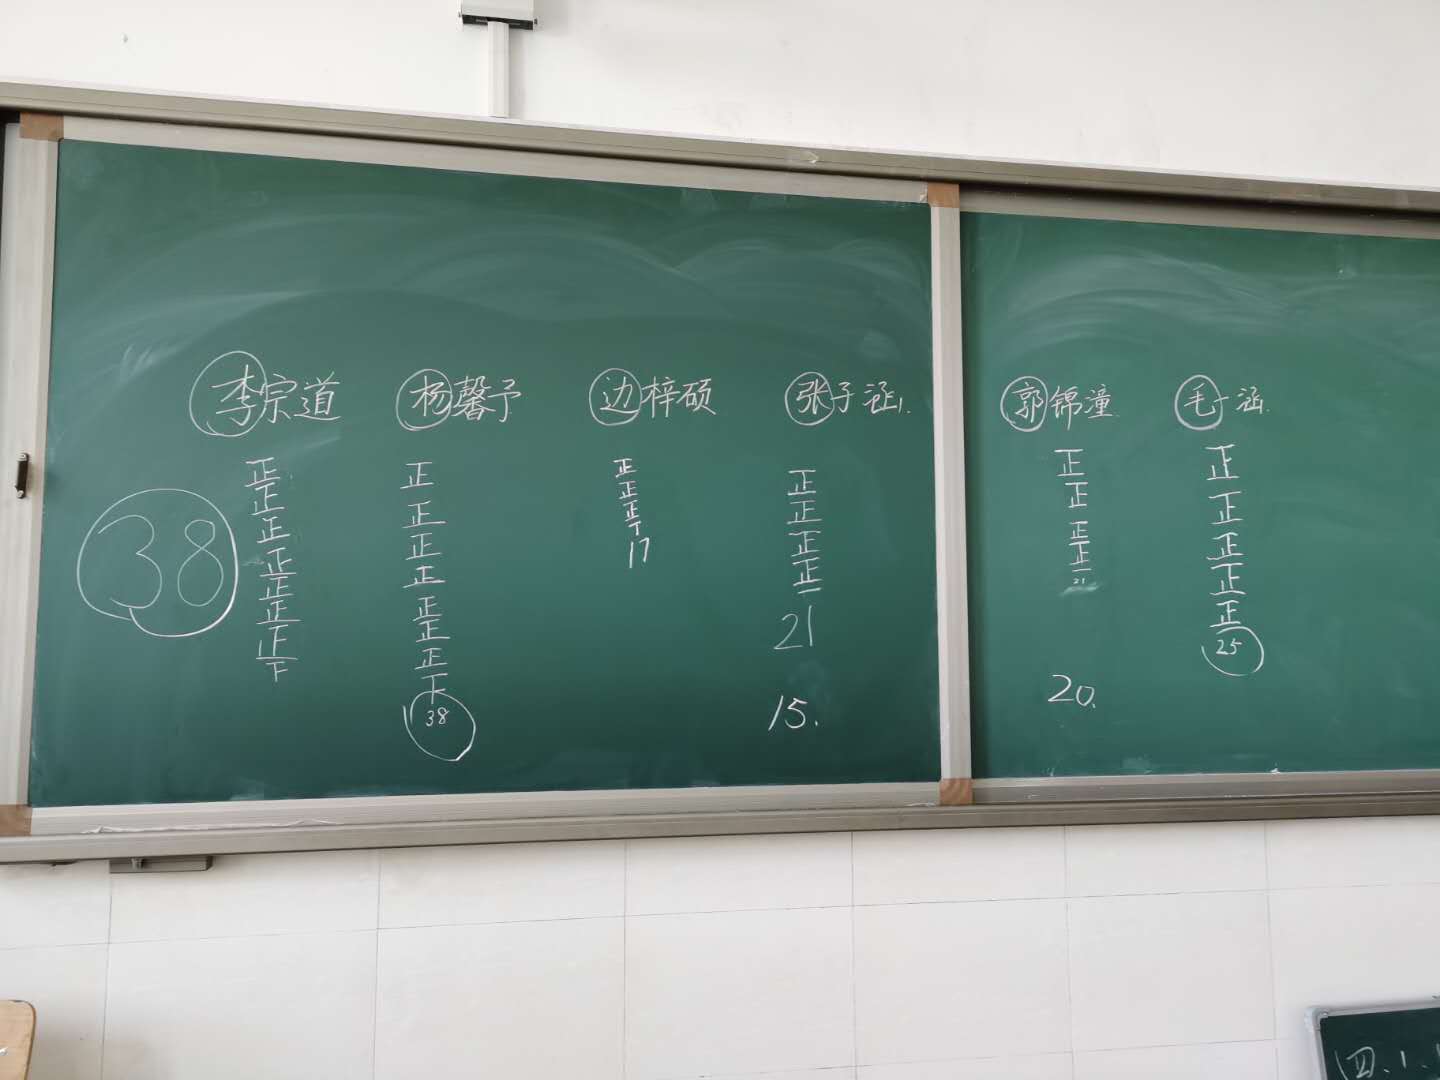 李宗道 杨馨予 边梓硕 张子涵 郭锦潼 毛一涵
正 正 正 正 正 正
正 正 正 正 正 正
正 正 正 正 正 正
正 正 丅 正 正 正
正 正 17 一 一 正
正 正 21 21 25
正 正 15. 20.
下 下
38 38
四.1.